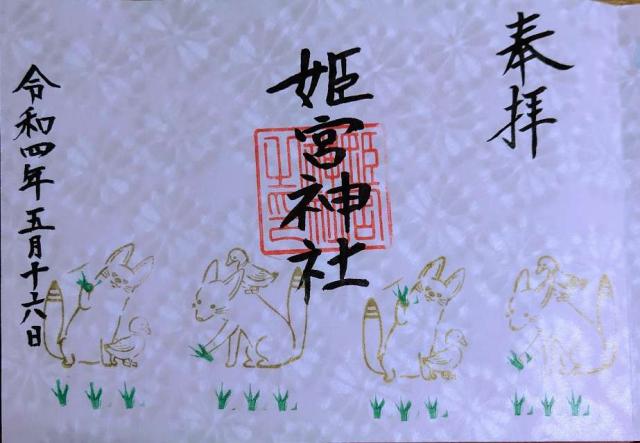 奉拝
姫宮神社
令和四年五月十六日